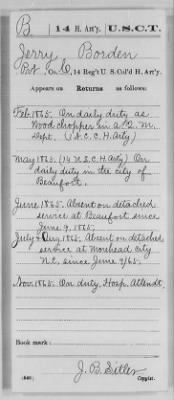 B. 14 H. Art'y. U.S.C.T.
Jerry Borden
Pvt., Co. C, 14 Reg't U. S. Col'd H. Art'y.
Appears on Returns as follows:
Feb 1865. On daily duty as
wood chopper in a Q. M.
Dept. (1 N.C.C.H. Arty)
May 1865. (14 U.S.C.H. Arty) On
daily duty in the city of
Beaufort.
June 1865. Absent on detached
service at Beaufort since
June 9, 1865.
July & Aug. 1865. Absent on detached
service at Morehead City
N.C. since June 9/65.
Nov. 1865. On duty Hosp. Attendt.
Book mark:
J. B. Sitler
(546) Copyist.